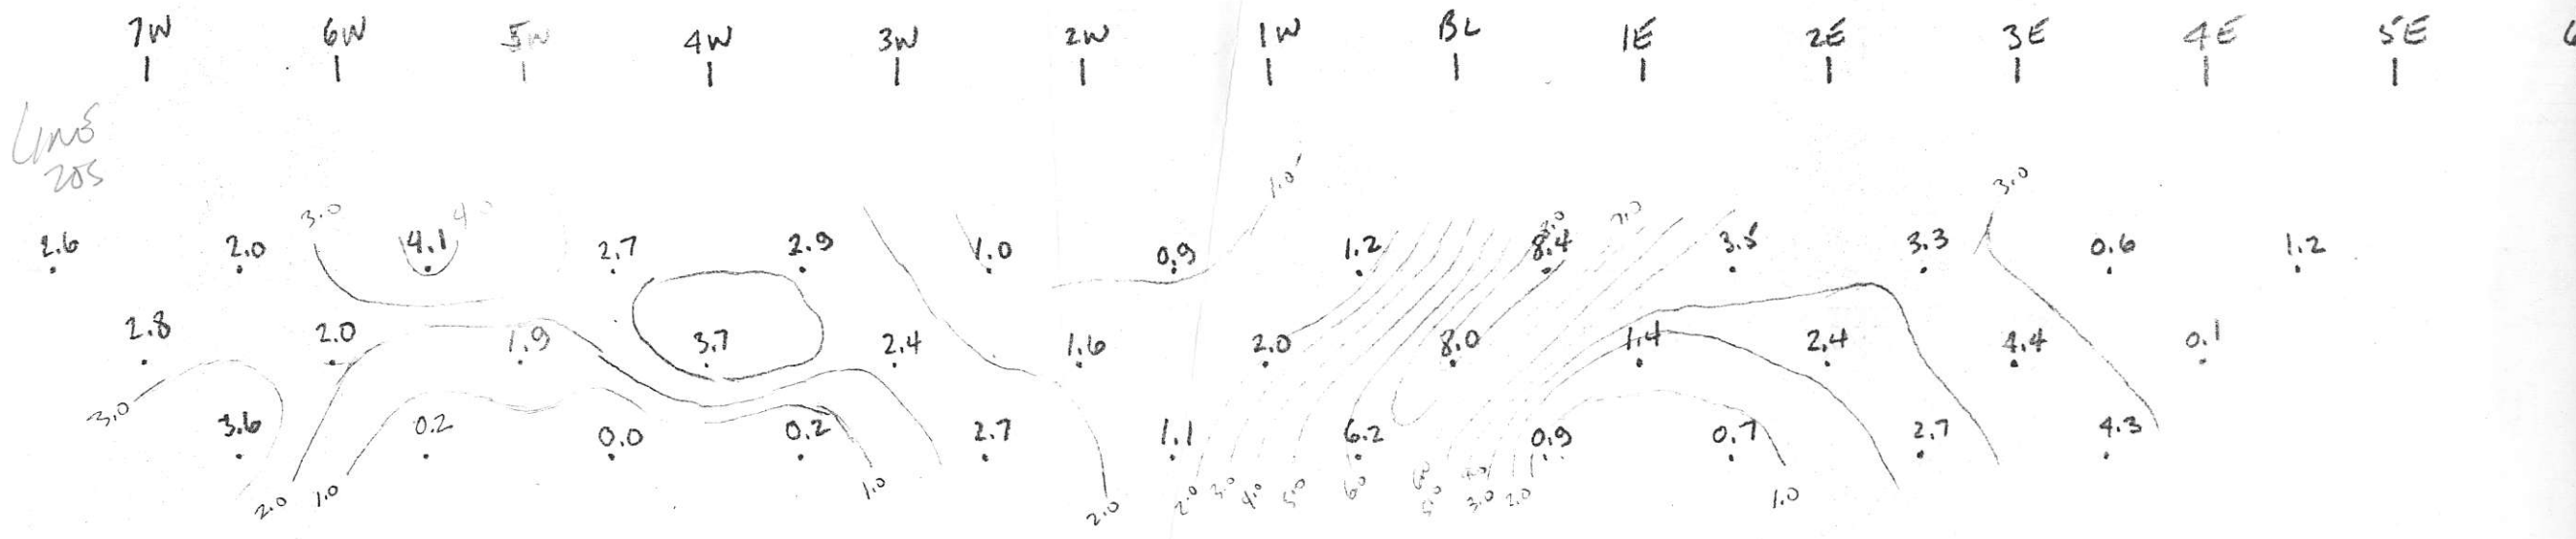 7W 6W 5W 4W 3W 2W 1W BL 1E 2E 3E 4E 5E
LINE
20S
1.0
3.0
3.0 4.0 7.0
2.6 2.0 4.1 2.7 2.9 1.0 0.9 1.2 8.4 3.5 3.3 0.6 1.2
2.8 2.0 1.9 3.7 2.4 1.6 2.0 8.0 1.4 2.4 4.4 0.1
3.0
3.6 0.2 0.0 0.2 2.7 1.1 6.2 0.9 0.7 2.7 4.3
2.0 1.0 1.0 2.0 2.0 3.0 4.0 5.0 6.0 5.0 3.0 2.0 1.0